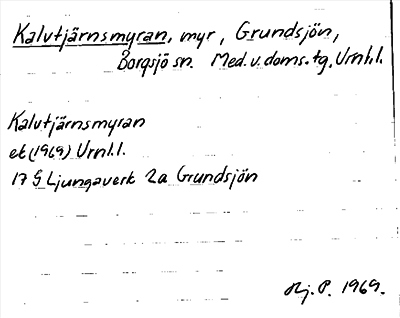 Kalvtjärnsmyran, myr, Grundsjön,
Borgsjö sn. Med. v. doms. tg, Urnh.l.
Kalvtjärnsmyran
ek (1969) Urnh.l.
17 G Ljungaverk 2a Grundsjön
Hj. P. 1969.